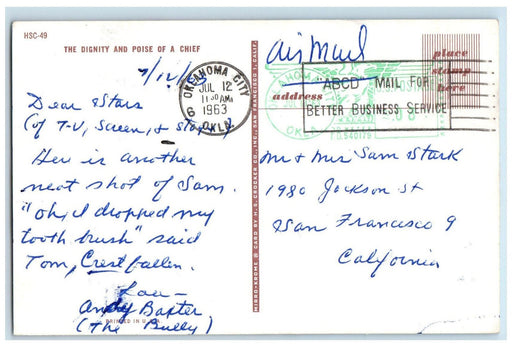 HSC-49
THE DIGNITY AND POISE OF A CHIEF
7/12/63
Dear Stars
(of T-V, Screen, &
Her is another
neat shot of Sam.
"oh, I dropped my
tooth brush" said
Tom, Crestfallen.
Andy Baxter
(The Bully)
PRINTED IN U.S.A.
MIRRO-KROME ® CARD BY H. S. CROCKER CO., INC., SAN FRANCISCO 1, CALIF.
OKLAHOMA CITY
JUL 12
11 30 AM
1963
OKLA.
"ABCD" MAIL FOR
BETTER BUSINESS SERVICE
Air Mail
place
stamp
here
address
OKLA
Mr & Mrs Sam Stark
1980 Jackson St
San Francisco 9
California